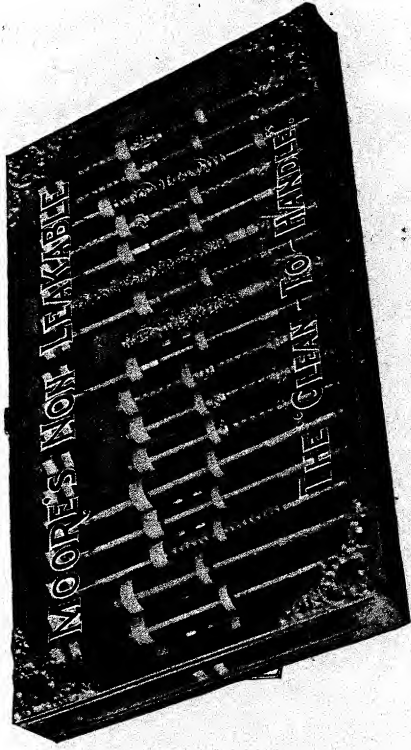 MOORE'S NON LEAKABLE
THE "CLEAN-TO-HANDLE."